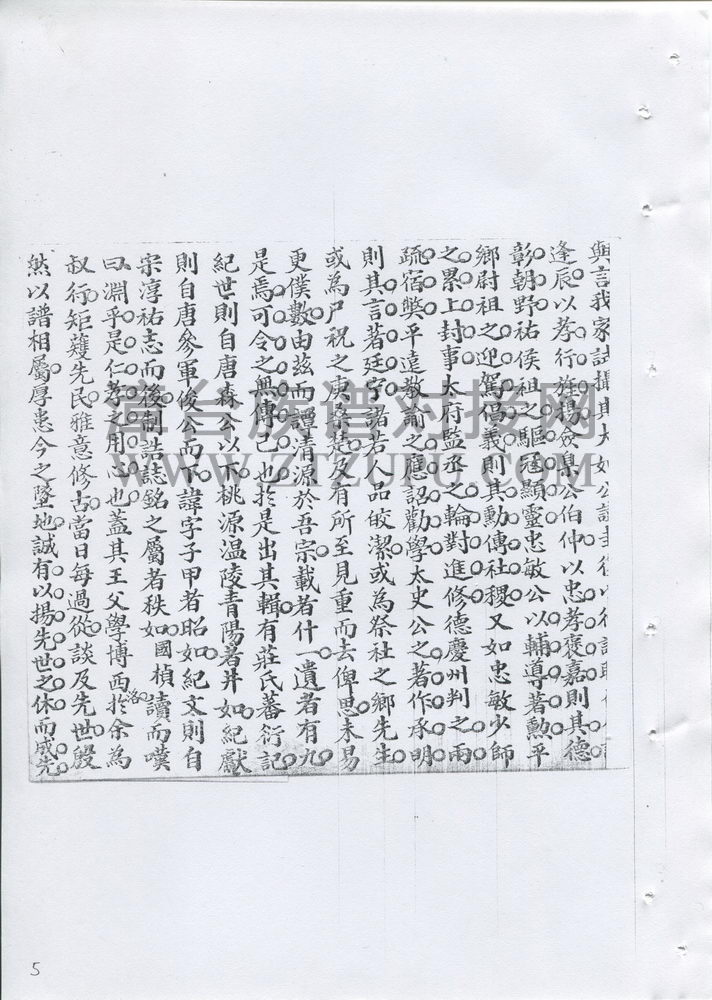 與言我家
逢辰以孝行旌揚僉臬公伯仲以忠孝褒嘉則其德
彰朝野祐侯祖之驅冦顯靈忠敏公以輔導著勳平
鄉尉祖之迎駕倡義則其勳傳社稷又如忠敏少師
之累上封事太府監丞之輪對進修德慶州判之兩
疏宿弊平遠教諭之應詔勸學太史公之著作承明
則其言著廷宁諸若人品皎潔或為祭社之鄉先生
或為尸祝之庚桑楚及有所至見重而去俾思未易
更僕數由茲而譚清源於吾宗載者什一遺者有九
是焉可令之無傳已也於是出其輯有莊氏蕃衍記
紀世則自唐森公以下桃源溫陵青陽著井如紀獻
則自唐參軍俊公而下諱字子甲者昭如紀文則自
宋淳祐志而後制誥誌銘之屬者秩如國楨讀而嘆
曰淵乎是仁孝之用心也蓋其王父學博西洛於余為
叔行矩矱先民雅意修古當日每過從談及先世殷
然以譜相屬厚恚今之墜地誠有以揚先世之休而咸先
漳台族谱对接网
WWW.ZTZUPU.COM
5